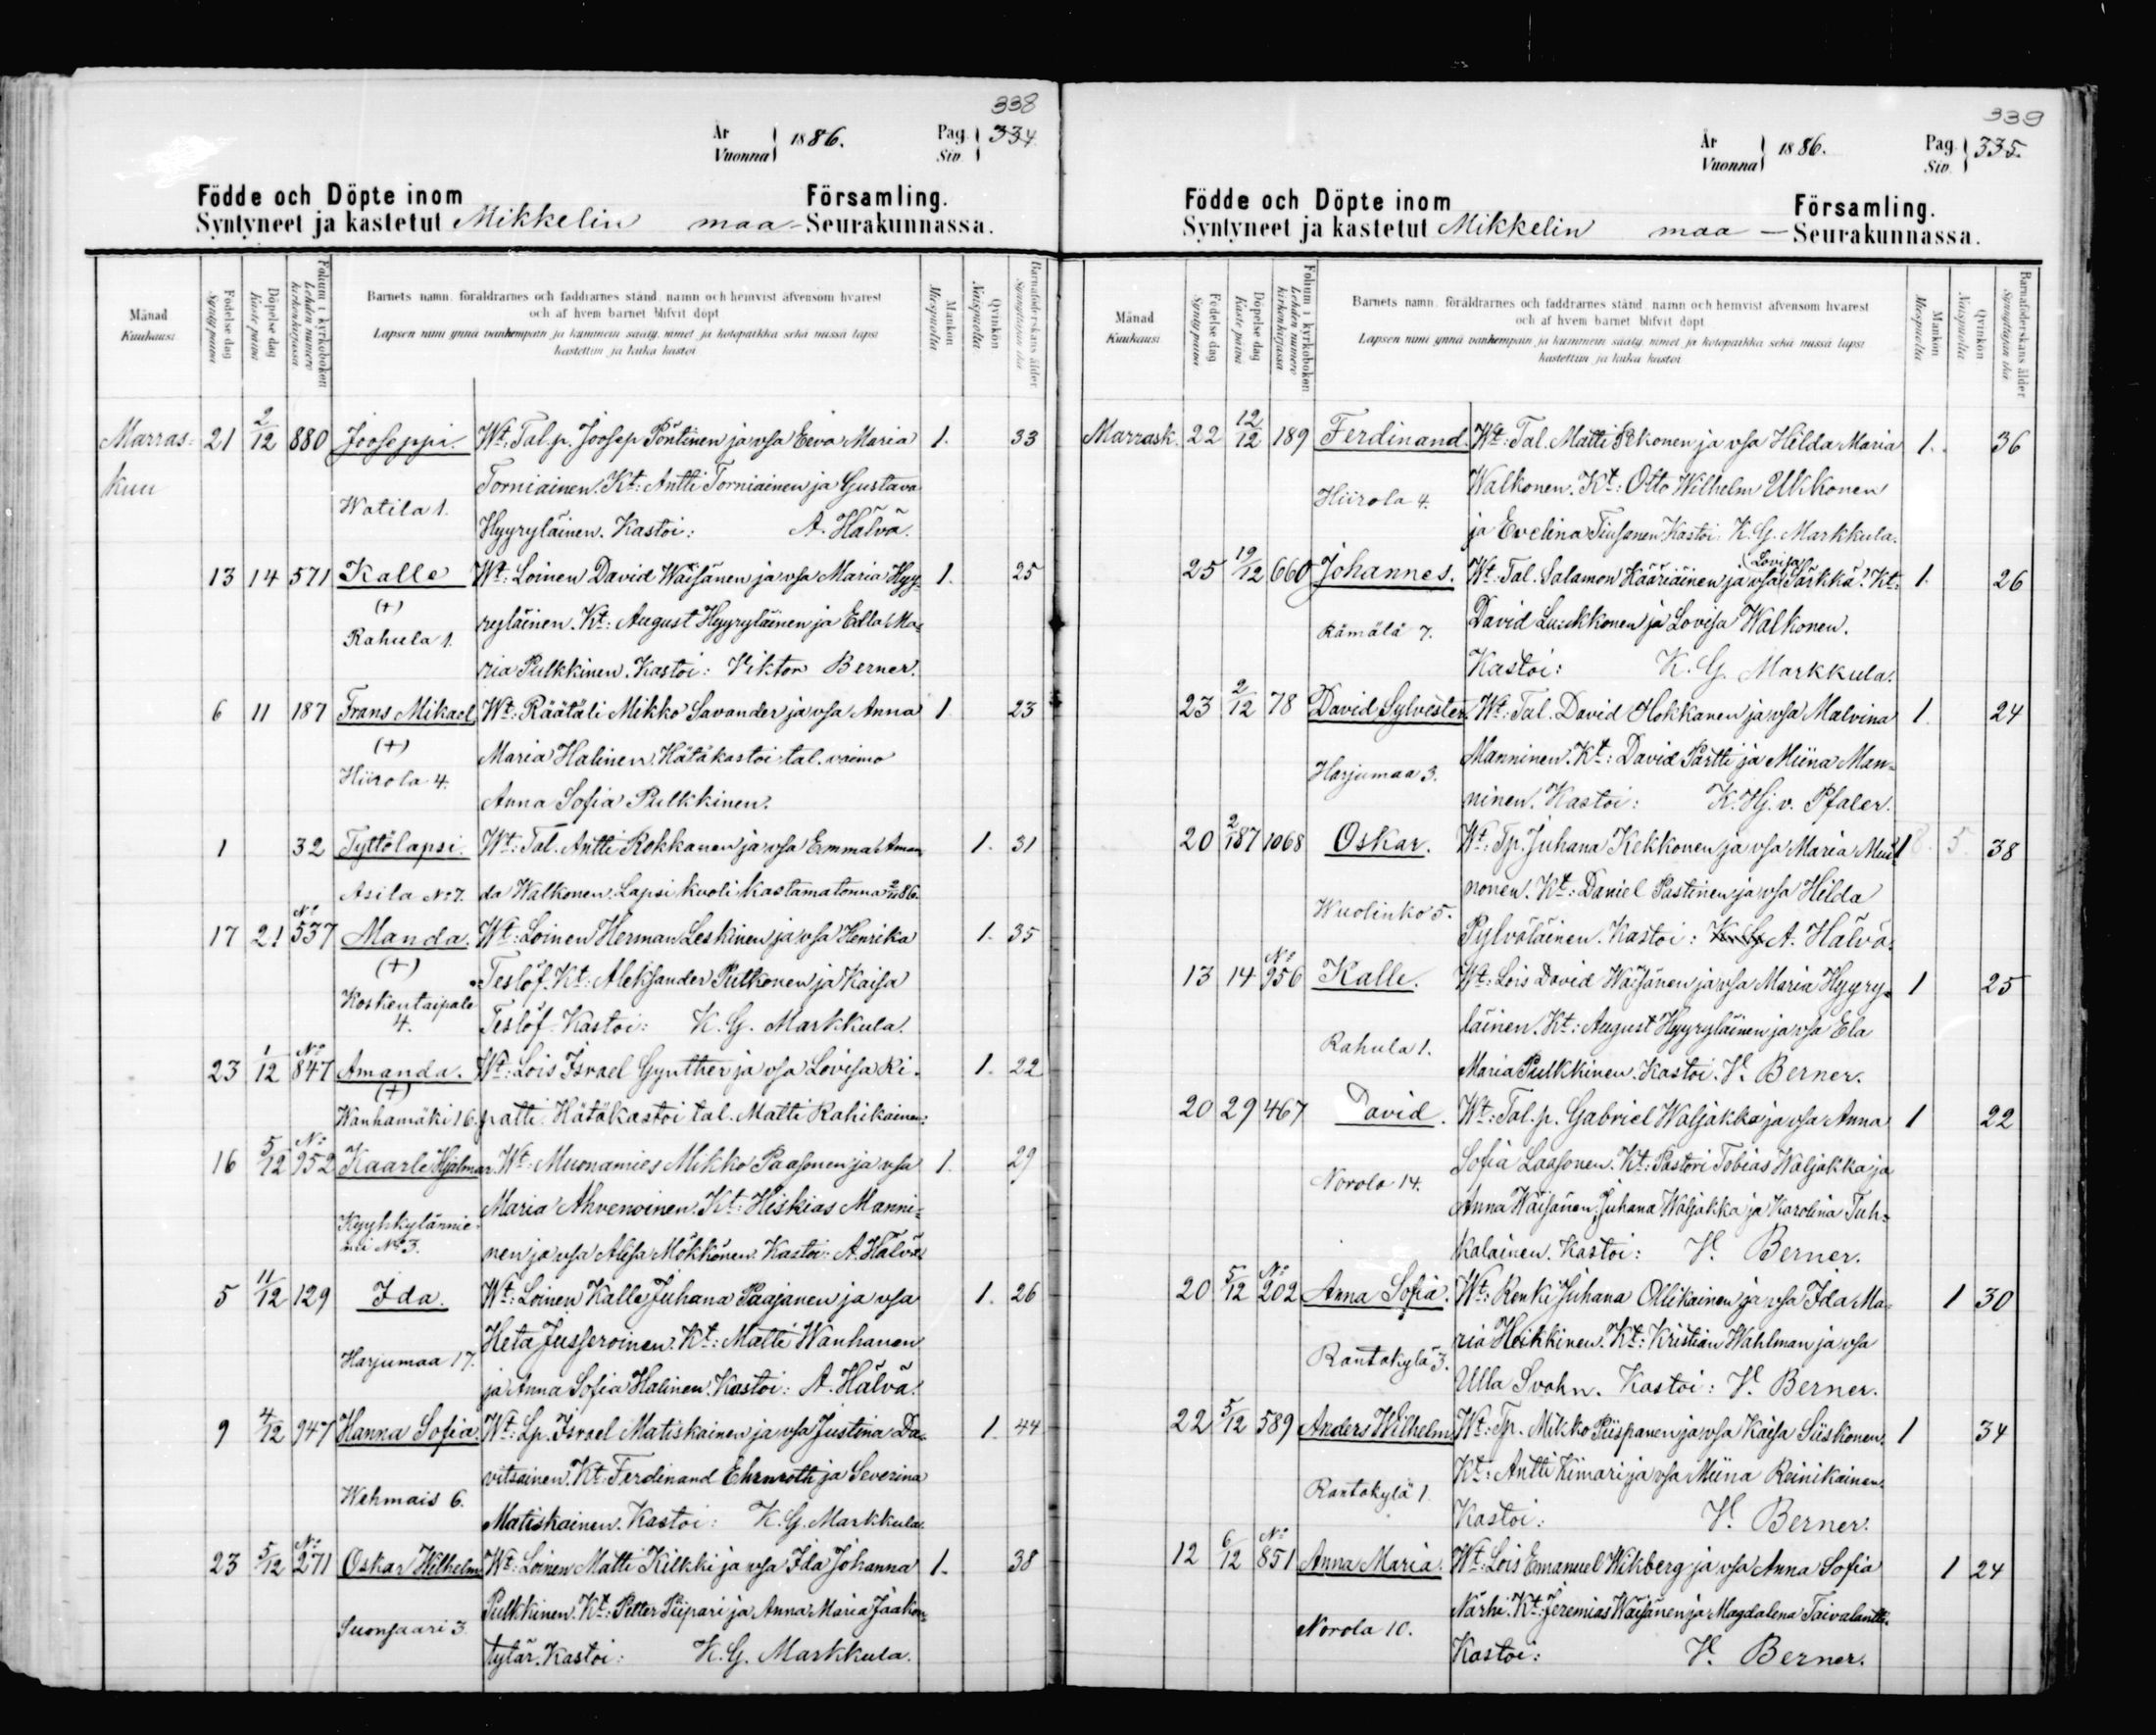 338
År
Vuonna 1886.
Pag.
Siv. 334
Födde och Döpte inom Församling.
Syntyneet ja kastetut Mikkelin maa-Seurakunnassa.
Månad
Kuukausi
Födelse dag
Synty päivä
Döpelse dag
Kaste päivä
Folium i kyrkoboken
Lehden numero kirkonkirjassa
Barnets namn, föräldrarnes och faddrarnes stånd, namn och hemvist äfvensom hvarest
och af hvem barnet blifvit döpt
Lapsen nimi ynnä vanhempain ja kummein sääty, nimet ja kotopaikka sekä missä lapsi
kastettiin ja kuka kastoi
Mankön
Miespuolia
Qvinkön
Naispuolia
Barnaföderskans ålder
Synnyttäjän ikä
Marras- 21 2/12 880 Jooseppi. Wt: Tal. p. Joosep Pöntinen ja vsa Eeva Maria 1. 33
kuu Torniainen. Kt: Antti Torniainen ja Gustava
Watila 1. Hyyryläinen. Kastoi: A. Hälvä.
13 14 571 Kalle Wt: Loinen David Wäisänen ja vsa Maria Hyy- 1. 25
(+) ryläinen. Kt: August Hyyryläinen ja Edla Ma-
Rahula 1. ria Pulkkinen. Kastoi: Viktor Berner.
6 11 187 Frans Mikael Wt: Räätäli Mikko Savander ja vsa Anna 1 23
(+) Maria Halinen. Hätäkastoi tal. vaimo
Hiirola 4. Anna Sofia Pulkkinen.
1 32 Tyttölapsi. Wt: Tal. Antti Rokkanen ja vsa Emma Aman- 1. 31
Asila No 7. da Walkonen. Lapsi kuoli kastamatonna 2/11 86.
17 21 No 537 Manda. Wt: Loinen Herman Leskinen ja vsa Henrika 1. 35
(+) Teslöf. Kt: Aleksander Putkonen ja Kaisa
Koskentaipale 4. Teslöf. Kastoi: K. G. Markkula.
23 1/12 No 847 Amanda. Wt: Lois Israel Gynther ja vsa Lovisa Ri- 1. 22
(+)
Wanhamäki 16. patti. Hätäkastoi tal. Matti Rahikainen.
16 5/12 No 952 Kaarle Hjalmar. Wt: Muonamies Mikko Paasonen ja vsa 1. 29
Maria Ahvenoinen. Kt: Hiskias Manni-
Kyyhkylännie-
mi No 3. nen ja vsa Alisa Mökkönen. Kastoi: A. Hälvä
5 11/12 129 Ida. Wt: Loinen Kalle Juhana Paajanen ja vsa 1. 26
Heta Jusseroinen. Kt: Matti Wanhanen
Harjumaa 17. ja Anna Sofia Halinen. Kastoi: A. Hälvä.
9 4/12 947 Hanna Sofia. Wt: Lp. Israel Matiskainen ja vsa Justina Da- 1. 44
vitsainen. Kt: Ferdinand Ehrnroth ja Severina
Wehmais 6. Matiskainen. Kastoi: K. G. Markkula.
23 5/12 No 271 Oskar Wilhelm Wt: Loinen Matti Kilkki ja vsa Ida Johanna 1. 38
Pulkkinen. Kt: Petter Piipari ja Anna Maria Jaakon-
Suonsaari 3. tytär. Kastoi: K. G. Markkula.
339
År
Vuonna 1886.
Pag.
Siv. 335.
Födde och Döpte inom Församling.
Syntyneet ja kastetut Mikkelin maa-Seurakunnassa.
Månad
Kuukausi
Födelse dag
Synty päivä
Döpelse dag
Kaste päivä
Folium i kyrkoboken
Lehden numero kirkonkirjassa
Barnets namn, föräldrarnes och faddrarnes stånd, namn och hemvist äfvensom hvarest
och af hvem barnet blifvit döpt
Lapsen nimi ynnä vanhempain ja kummein sääty, nimet ja kotopaikka sekä missä lapsi
kastettiin ja kuka kastoi
Mankön
Miespuolia
Qvinkön
Naispuolia
Barnaföderskans ålder
Synnyttäjän ikä
Marrask. 22 12/12 189 Ferdinand. Wt: Tal. Matti Ukkonen ja vsa Hilda Maria 1. 36
Walkonen. Kt: Otto Wilhelm Ukkonen
Hiirola 4. ja Evelina Tiusanen. Kastoi: K. G. Markkula.
25 19/12 660 Johannes. Wt: Tal. Salamon Kääriäinen ja vsa (Lovisa) Särkkä. Kt: 1. 26
Rämälä 7. David Luukkonen ja Lovisa Walkonen.
Kastoi: K. G. Markkula.
23 2/12 78 David Sylvester. Wt: Tal. David Hokkanen ja vsa Malvina 1. 24
Harjumaa 3. Manninen. Kt: David Pärtti ja Miina Man-
ninen. Kastoi: K. Hj. v. Pfaler.
20 2/1 87 1068 Oskar. Wt: Tp. Juhana Kekkonen ja vsa Maria 1 8. 5. 38
nonen. Kt: Daniel Pastinen ja vsa Hilda
Wuolinko 5. Pylväläinen. Kastoi: K. G. A. Hälvä.
13 14 No 956 Kalle. Wt: Lois David Wäisänen ja vsa Maria Hyyry- 1 25
läinen. Kt: August Hyyryläinen ja vsa Ela
Rahula 1. Maria Pulkkinen. Kastoi. V. Berner.
20 29 467 David. Wt: Tal. p. Gabriel Waljakka ja vsa Anna 1 22
Sofia Laasonen. Kt: Pastori Tobias Waljakka ja
Norola 14. Anna Wäisänen, Juhana Waljakka ja Karolina Tuh-
kalainen. Kastoi: V. Berner.
20 5/12 No 202 Anna Sofia. Wt: Renki Juhana Ollikainen ja vsa Ida Ma- 1 30
ria Heikkinen. Kt: Kristian Wahlman ja vsa
Rantakylä 3. Ulla Svahn. Kastoi: V. Berner.
22 5/12 589 Anders Wilhelm Wt: Tp. Mikko Piispanen ja vsa Kaisa Siiskonen. 1 34
Kt: Antti Kimari ja vsa Miina Reinikainen.
Rantakylä 1. Kastoi: V. Berner.
12 6/12 No 851 Anna Maria. Wt: Lois Emanuel Wikberg ja vsa Anna Sofia 1 24
Närhi. Kt: Jeremias Wäisänen ja Magdalena Taivalantti.
Norola 10. Kastoi: V. Berner.